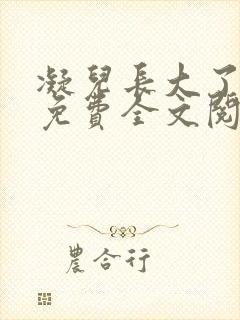 凝兒長大了
免費全文閱
農合行